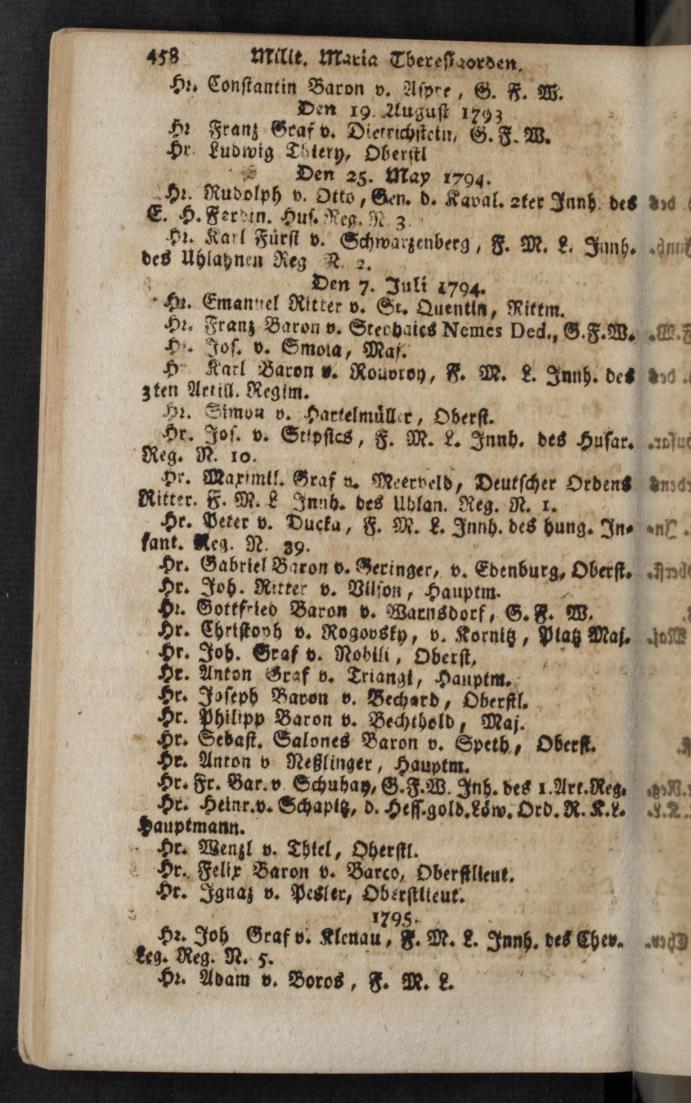 458 Milit. Maria Theresiaorden.
Hr. Constantin Baron v. Aspre, G. F. W.
Den 19. August 1793
Hr Franz Graf v. Dietrichstein, G. F. W.
Hr. Ludwig Thiery, Oberstl
Den 25. May 1794.
Hr. Rudolph v. Otto, Gen. d. Kaval. 2ter Innh. des
E. H. Ferdin. Hus. Reg. N. 3.
Hr. Karl Fürst v. Schwarzenberg, F. M. L. Innh.
des Uhlahnen Reg N. 2.
Den 7. Juli 1794.
Hr. Emanuel Ritter v. St. Quentin, Rittm.
Hr. Franz Baron v. Stephaics Nemes Ded., G.F.W.
Hr. Jos. v. Smola, Maj.
Hr Karl Baron v. Rouvroy, F. M. L. Innh. des
3ten Artill. Regim.
Hr. Simon v. Hartelmüller, Oberst.
Hr. Jos. v. Stipsics, F. M. L. Innh. des Husar.
Reg. N. 10.
Hr. Maximil. Graf v. Meerveld, Deutscher Ordens
Ritter. F. M. L Innh. des Uhlan. Reg. N. 1.
Hr. Peter v. Ducka, F. M. L. Innh. des hung. In-
fant. Reg. N. 39.
Hr. Gabriel Baron v. Geringer, v. Edenburg, Oberst.
Hr. Joh. Ritter v. Vilson, Hauptm.
Hr. Gottfried Baron v. Warnsdorf, G. F. W.
Hr. Christoph v. Rogovsky, v. Kornitz, Platz Maj.
Hr. Joh. Graf v. Nobili, Oberst.
Hr. Anton Graf v. Triangi, Hauptm.
Hr. Joseph Baron v. Bechard, Oberstl.
Hr. Philipp Baron v. Bechthold, Maj.
Hr. Sebast. Salones Baron v. Speth, Oberst.
Hr. Anton v Neßlinger, Hauptm.
Hr. Fr. Bar. v Schuhay, G.F.W. Inh. des 1. Art. Reg.
Hr. Heinr. v. Schapitz, d. Hess. gold. Löw. Ord. R. K. L.
Hauptmann.
Hr. Wenzl v. Thiel, Oberstl.
Hr. Felix Baron v. Barco, Oberstlieut.
Hr. Ignaz v. Pesler, Oberstlieut.
1795.
Hr. Joh Graf v. Klenau, F. M. L. Innh. des Chev.
Leg. Reg. N. 5.
Hr. Adam v. Boros, F. M. L.